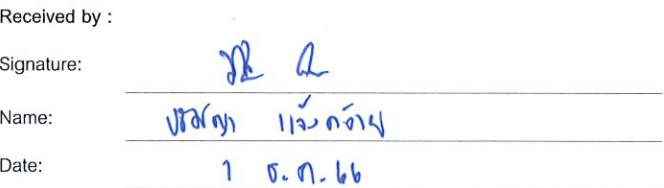 Received by :
Signature:
Name: แจ้งคล้าย
Date: 1 ธ.ค. 66